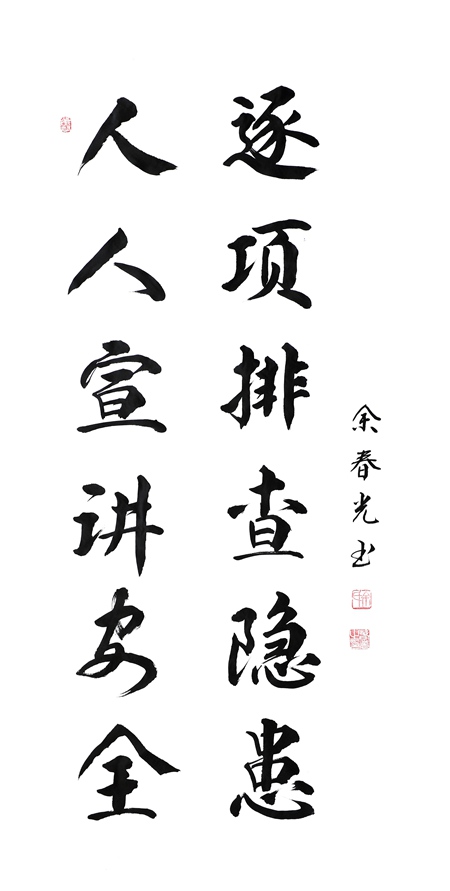 人人宣讲安全
逐项排查隐患
余春光书